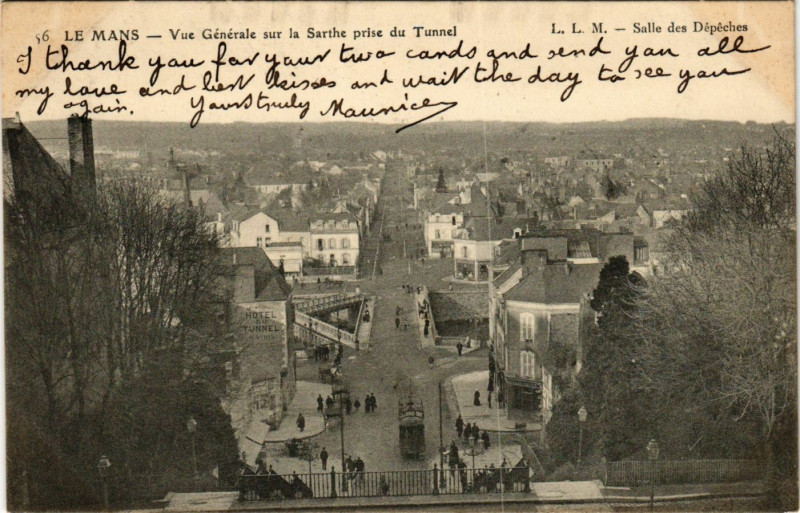 56 LE MANS — Vue Générale sur la Sarthe prise du Tunnel
L. L. M. — Salle des Dépêches
I thank you for your two cards and send you all
my love and best kisses and wait the day to see you
again. Yours truly Maurice
HOTEL
DU
TUNNEL